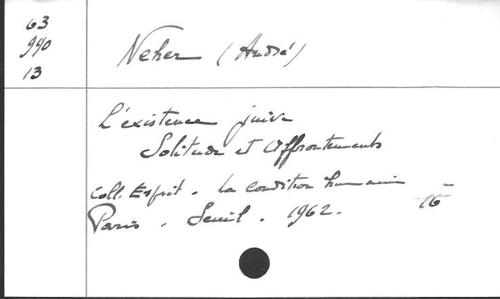 63
990
13
Neher (André)
L'existence juive
Solitude et Affrontements
Coll. Esprit. La condition humaine
Paris. Seuil. 1962.